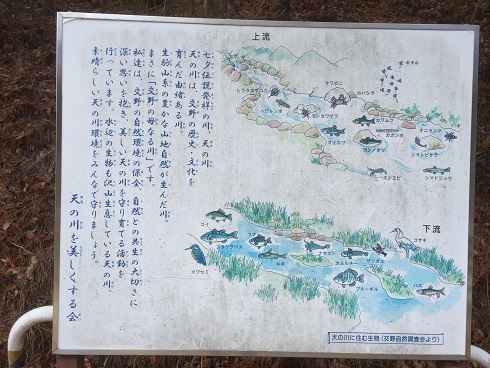 七夕伝説発祥の川、天の川
天の川は、交野の歴史・文化を
育んだ由緒ある川。
生駒山系の豊かな山地自然が生んだ川。
まさに「交野の母なる川」です。
私達は、交野の自然環境の保全、自然との共生の大切さに
深い思いを抱き、美しい天の川を守り育てる活動を
行っています。水辺の生物も沢山生息している天の川。
素晴らしい天の川環境をみんなで守りましょう。
天の川を美しくする会
上流
ホタル
サワガニ
カワムツ
オイカワ
ヨシノボリ
オニヤンマ
シマトビケラ
スジエビ
シマドジョウ
下流
コイ
フナ
ナマズ
カムルチー
コサギ
カワセミ
ブルーギル
ハス
天の川に住む生物(交野自然調査会より)